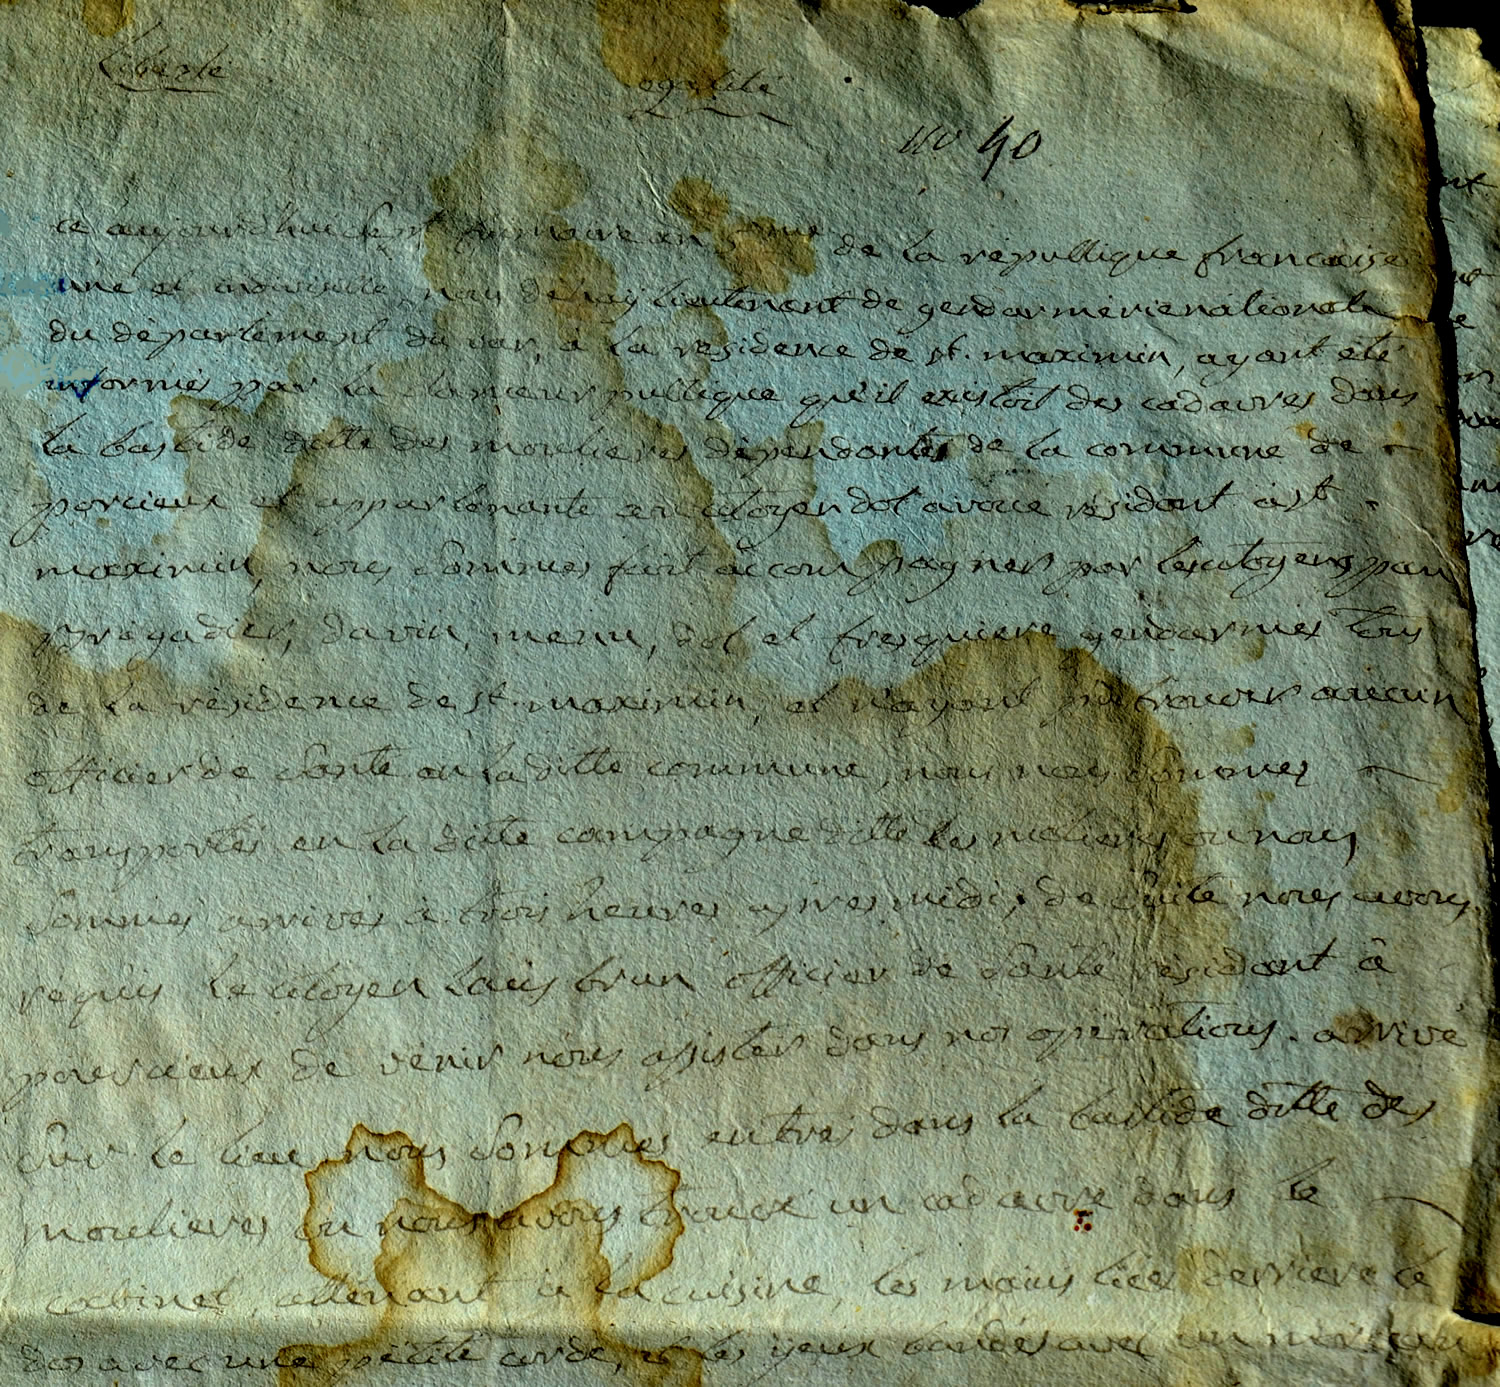 Liberté
egalité
no 40
ce aujourdhui sept frimaire an de la republique francaise
une et indivisible, nous lieutenant de gendarmerie nationale
du département du var, à la residence de st. maximin, ayant eté
informés par la clameur publique qu'il existoit des cadavres dans
la bastide ditte des moulieres dépendante de la commune de
porcieux et appartenante au citoyen dol avoué résidant à st
maximin, nous sommes fait accompagner par les citoyens pau
brigadier, davin, menu, dol et fresquiere gendarmes tous
de la résidence de st. maximin, et n'ayant pu trouver aucun
officier de santé en la ditte commune, nous nous sommes
transportés en la ditte campagne ditte les molieres ou nous
sommes arrivés à trois heures apres midi, de suite nous avons
requis le citoyen Louis brun officier de santé résidant à
pourcieux de venir nous assister dans nos opérations. arrivé
sur le lieu nous sommes entrés dans la bastide ditte des
moulieres ou nous avons trouvé un cadavre dans le
cabinet attenant à la cuisine, les mains liées derriere le
dos avec une petite corde, et les yeux bandés avec un morceau